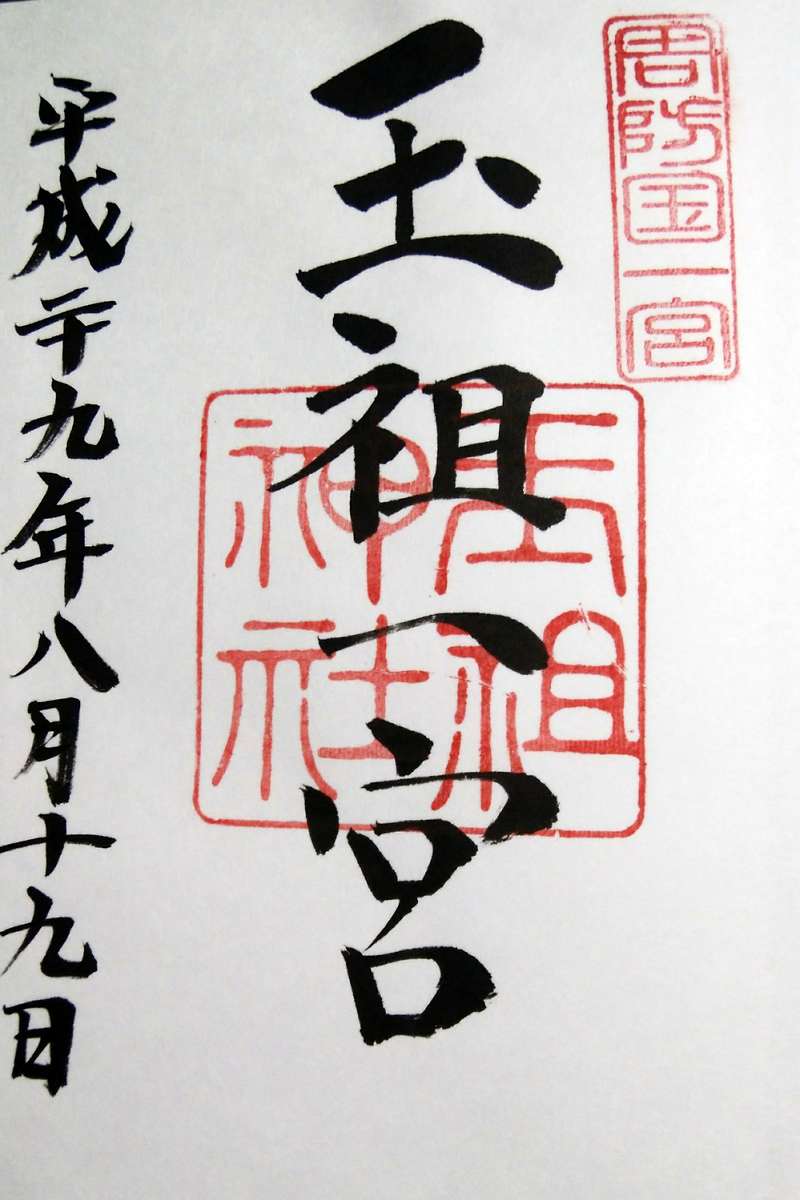 周防国一宮
玉祖一宮
玉祖
神社
平成二十九年八月十九日